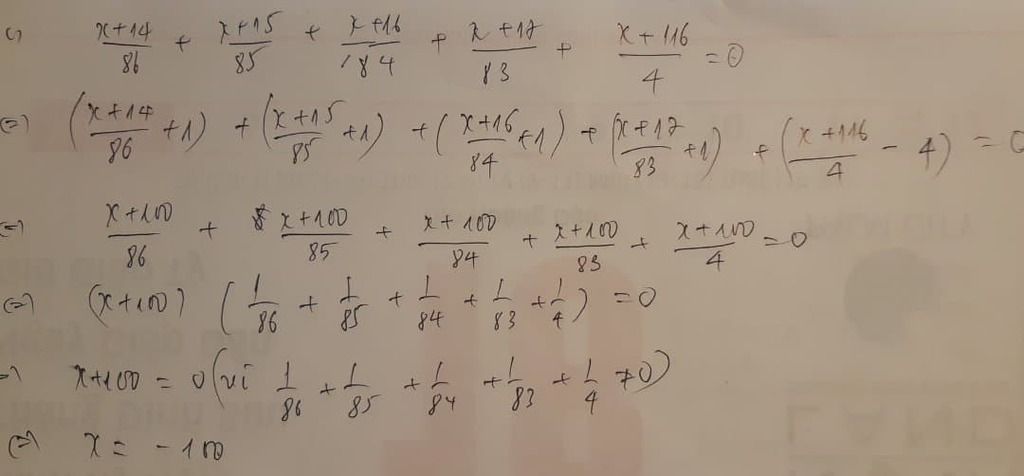 c) \frac{x+14}{86} + \frac{x+15}{85} + \frac{x+16}{84} + \frac{x+17}{83} + \frac{x+116}{4} = 0
(=) (\frac{x+14}{86} + 1) + (\frac{x+15}{85} + 1) + (\frac{x+16}{84} + 1) + (\frac{x+17}{83} + 1) + (\frac{x+116}{4} - 4) = 0
(=) \frac{x+100}{86} + \frac{x+100}{85} + \frac{x+100}{84} + \frac{x+100}{83} + \frac{x+100}{4} = 0
(=) (x+100) (\frac{1}{86} + \frac{1}{85} + \frac{1}{84} + \frac{1}{83} + \frac{1}{4}) = 0
=) x+100 = 0 (vì \frac{1}{86} + \frac{1}{85} + \frac{1}{84} + \frac{1}{83} + \frac{1}{4} ≠ 0)
(=) x = -100